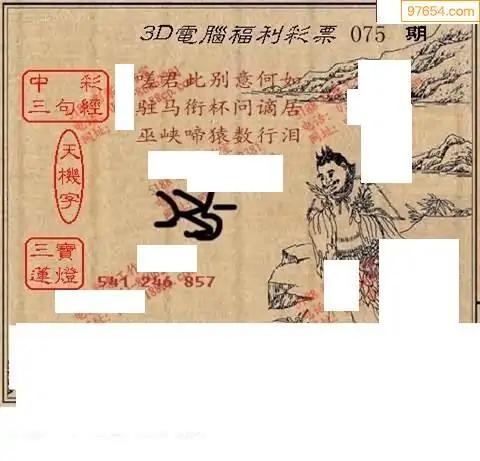 97654.com
3D電腦福利彩票 075 期
中彩
三句經
嗟君此别意何如
驻马衔杯问谪居
巫峡啼猿数行泪
天機字
三寶
蓮燈
541 246 857